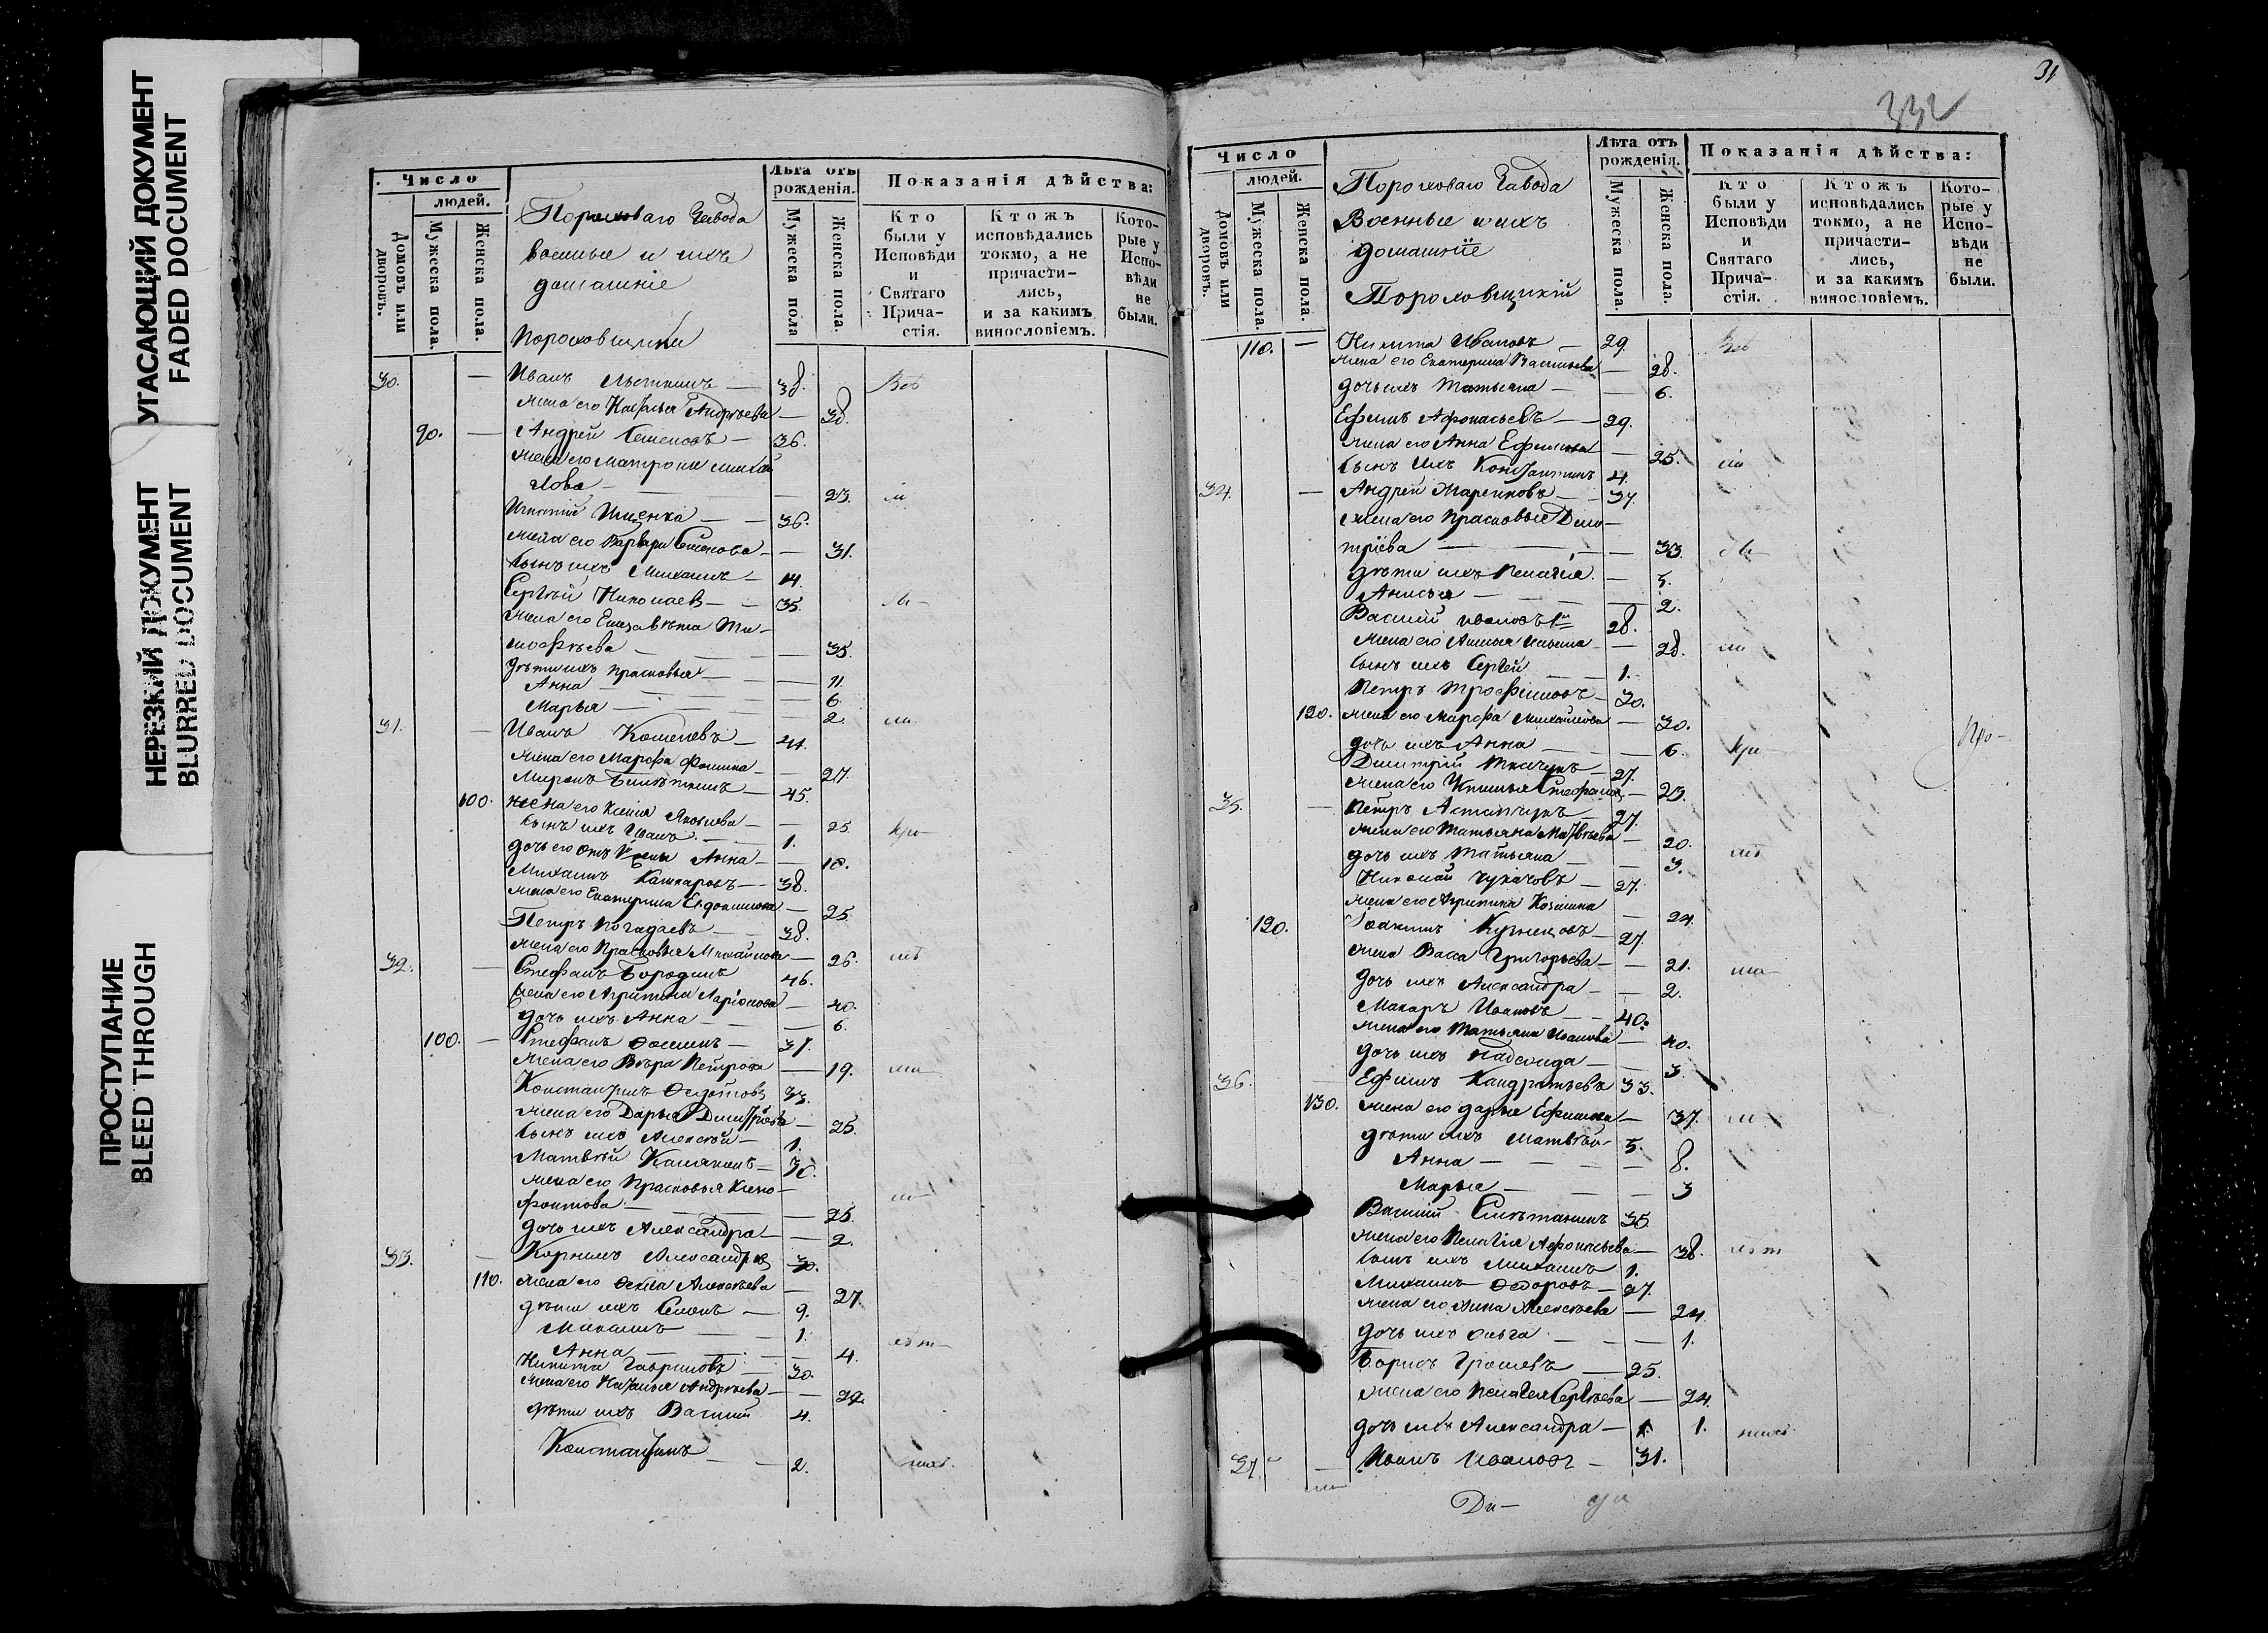 УГАСАЮЩИЙ ДОКУМЕНТ
FADED DOCUMENT
НЕРЕЗКИЙ ДОКУМЕНТ
BLURRED DOCUMENT
ПРОСТУПАНИЕ
BLEED THROUGH
Число
людей.
Домовъ или дворовъ.
Мужеска пола.
Женска пола.
Пороховаго Завода
военные и ихъ
домашніе
Пороховщики
Лѣта отъ рожденія.
Мужеска пола
Женска пола.
Показанія дѣйства:
Кто были у Исповѣди и Святаго Прича-стія.
Ктожъ исповѣдались токмо, а не причасти-лись, и за какимъ винословіемъ.
Кото-рые у Испо-вѣди не были.
30. — Иванъ — 38. Всѣ
жена его Наталья Андреева — 38.
90. — Андрей Семеновъ — 36.
жена его Матрона Михай
лова — 23.
Игнатій — 36.
жена его Варвара Семенова — 31.
сынъ ихъ Михаилъ — 14.
Сергѣй Николаевъ — 35.
жена его Елизавѣта Ти-
мофѣева — 35.
дѣти ихъ Прасковья — 11.
Анна — 6.
Марья — 2.
31. — Иванъ Кошелевъ — 41.
жена его Марфа Фомина — 27.
Миронъ — 45.
100. жена его Ксенія Яковлева — 25.
сынъ ихъ Иванъ — 1.
дочь его отъ 1й жены Анна — 18.
Михаилъ Кашкаровъ — 38.
жена его Екатерина Евдокимова — 25.
Петръ Погадаевъ — 38.
жена его Прасковья Михайлова — 26.
32. — Стефанъ Бородинъ 46.
жена его Агрипина Ларіонова — 40.
дочь ихъ Анна — 6.
100. — Стефанъ Ѳоминъ — 37.
жена его Вѣра Петрова — 19.
Константинъ Ѳедотовъ 33.
жена его Дарья Димитріева — 25.
сынъ ихъ Алексѣй — 1.
Матвѣй — 30.
жена его Прасковья Ксено-
фонтова — 25.
дочь ихъ Александра — 2.
33. — Корнилъ Александровъ 30.
110. жена его Алексѣева — 27.
дѣти ихъ Семенъ — 9.
1.
Анна — 4.
Никита Гавриловъ — 30.
жена его Наталья Андреева — 29.
дѣти ихъ Василій 4.
Константинъ — 2.
31
332
Число
людей.
Домовъ или дворовъ.
Мужеска пола.
Женска пола.
Пороховаго Завода
Военные и ихъ
домашніе
Пороховщики
Лѣта отъ рожденія.
Мужеска пола.
Женска пола.
Показанія дѣйства:
Кто были у Исповѣди и Святаго Прича-стія.
Ктожъ исповѣдались токмо, а не причасти-лись, и за какимъ винословіемъ.
Кото-рые у Испо-вѣди не были.
110. — Никита Ивановъ — 29. Всѣ
жена его Екатерина Васильева — 28.
дочь ихъ Татьяна — 6.
Ефимъ Афонасьевъ — 29.
жена его Анна Ефимова — 25.
сынъ ихъ Константинъ 4.
34. — Андрей Маренковъ — 37.
жена его Прасковья Дими-
тріева — 33.
дѣти ихъ Пелагія — 5.
Анисья — 2.
Василій Ивановъ 1й 28.
жена его — 28.
сынъ ихъ Сергѣй — 1.
Петръ Трофимовъ — 30.
120. жена его Марфа Михайлова — 30.
дочь ихъ Анна — 6.
Димитрій Ткачукъ — 27.
жена его — 23.
35. — Петръ — 27.
жена его Татьяна Матвѣева — 20.
дочь ихъ Татьяна — 3.
Николай — 27.
жена его Агрипина — 24.
120. Іоакимъ Кузнецовъ — 27.
жена Васса Григорьева — 21.
дочь ихъ Александра — 2.
Макаръ Ивановъ — 40.
жена его Татьяна Иванова — 40.
дочь ихъ — 3.
36. — Ефимъ Кандратьевъ 33.
130. жена его Дарья Ефимова — 37.
дѣти ихъ Матвѣй 5.
Анна — 8.
Марья — 3
Василій 35.
жена его Пелагія Афонасьева — 38.
сынъ ихъ Михаилъ 1.
Михаилъ Ѳедоровъ — 27.
жена его Анна Алексѣева — 24.
дочь ихъ Ольга — 1.
Борисъ — 25.
жена его Пелагея Сергѣева — 24.
дочь ихъ Александра — 1.
37. — Ивановъ — 31.